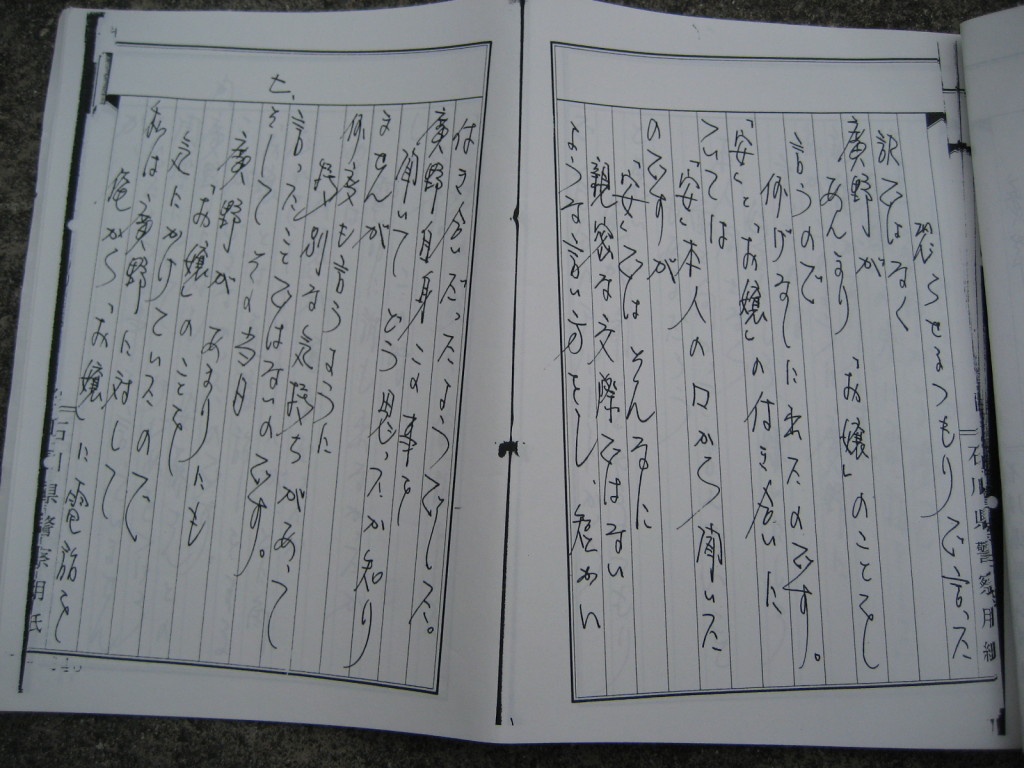 恐らせるつもりで言った
訳ではなく
廣野が「お嬢」のことを
あんまり
言うので
何げなしに出たのです。
「安」と「お嬢」の付き合いに
ついては
「安」本人の口から聞いた
のですが
「安」では そんなに
親密な交際ではない
ような言い方をし、短かい
石川県警察用紙
付き合いだったようでした。
廣野自身この事を
聞いて どう思ったか知り
ませんが
何度も言うように
特別な気持ちがあって
言ったことではないのです。
七、
そして その当日
廣野が あまりにも
「お嬢」のことを
気にかけていたので
私は、廣野に対して
俺から「お嬢」に電話を
石川県警察用紙